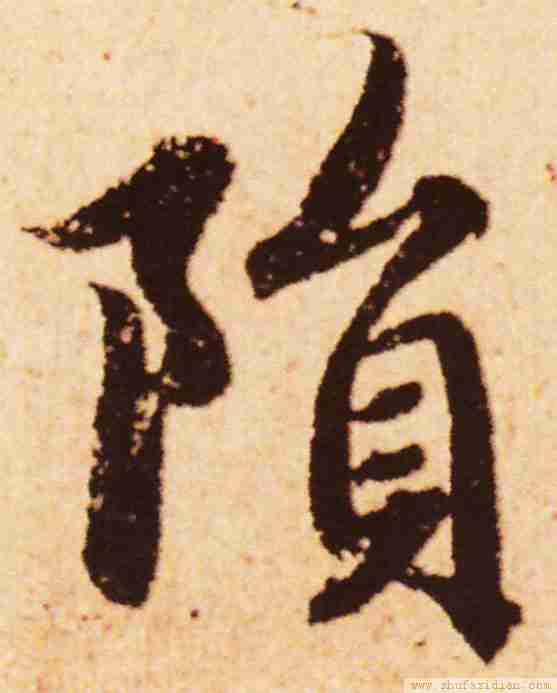 隕
www.shufazidian.com